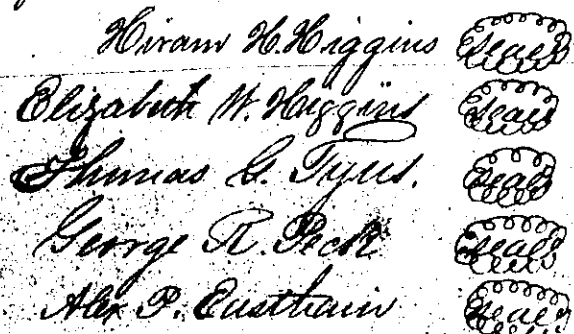 Hiram H. Higgins (Seal)
Elizabeth W. Higgins (Seal)
Thomas G. Tyus. (Seal)
George R. Peck (Seal)
Alex P. (Seal)